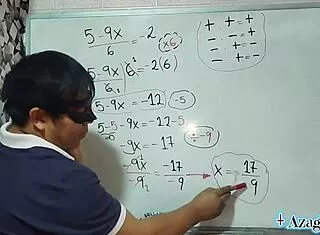 5-9x/6 = -2 (x6)
+ + = +
+ - = -
- - = +
5-9x/6 6 = -2(6)
5-9x = -12 (-5)
5-5-9x = -12-5
-9x = -17 (÷-9)
-9x/-9 = -17/-9 → x = 17/9
+ Azag